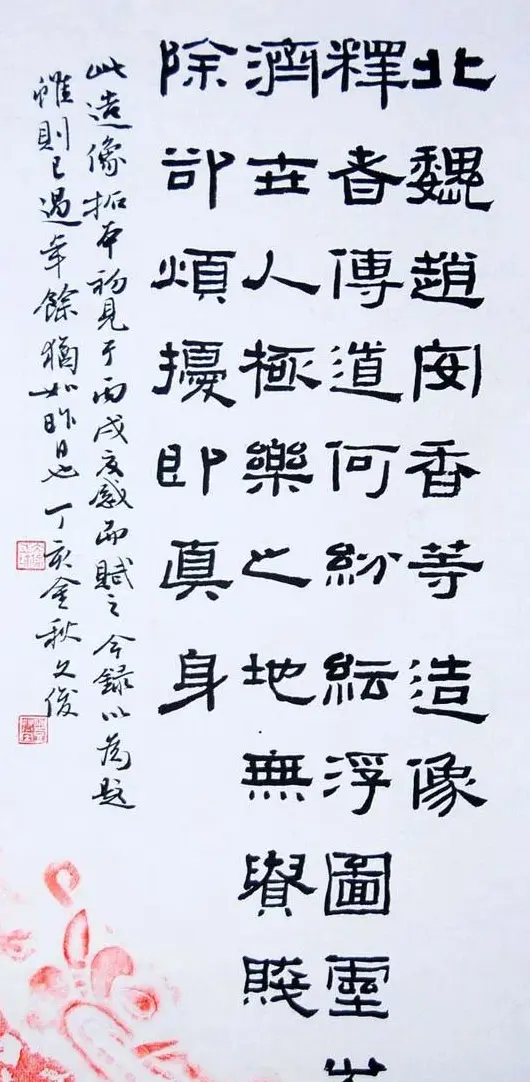 北魏趙安香等造像
釋者傳道何紛紜浮圖靈
濟世人極樂之地無貴賤
除卻煩擾即真身
此造像拓本初見于丙戌夏感而賦之今錄以為題
雖則已過年餘猶如昨日也丁亥金秋文俊